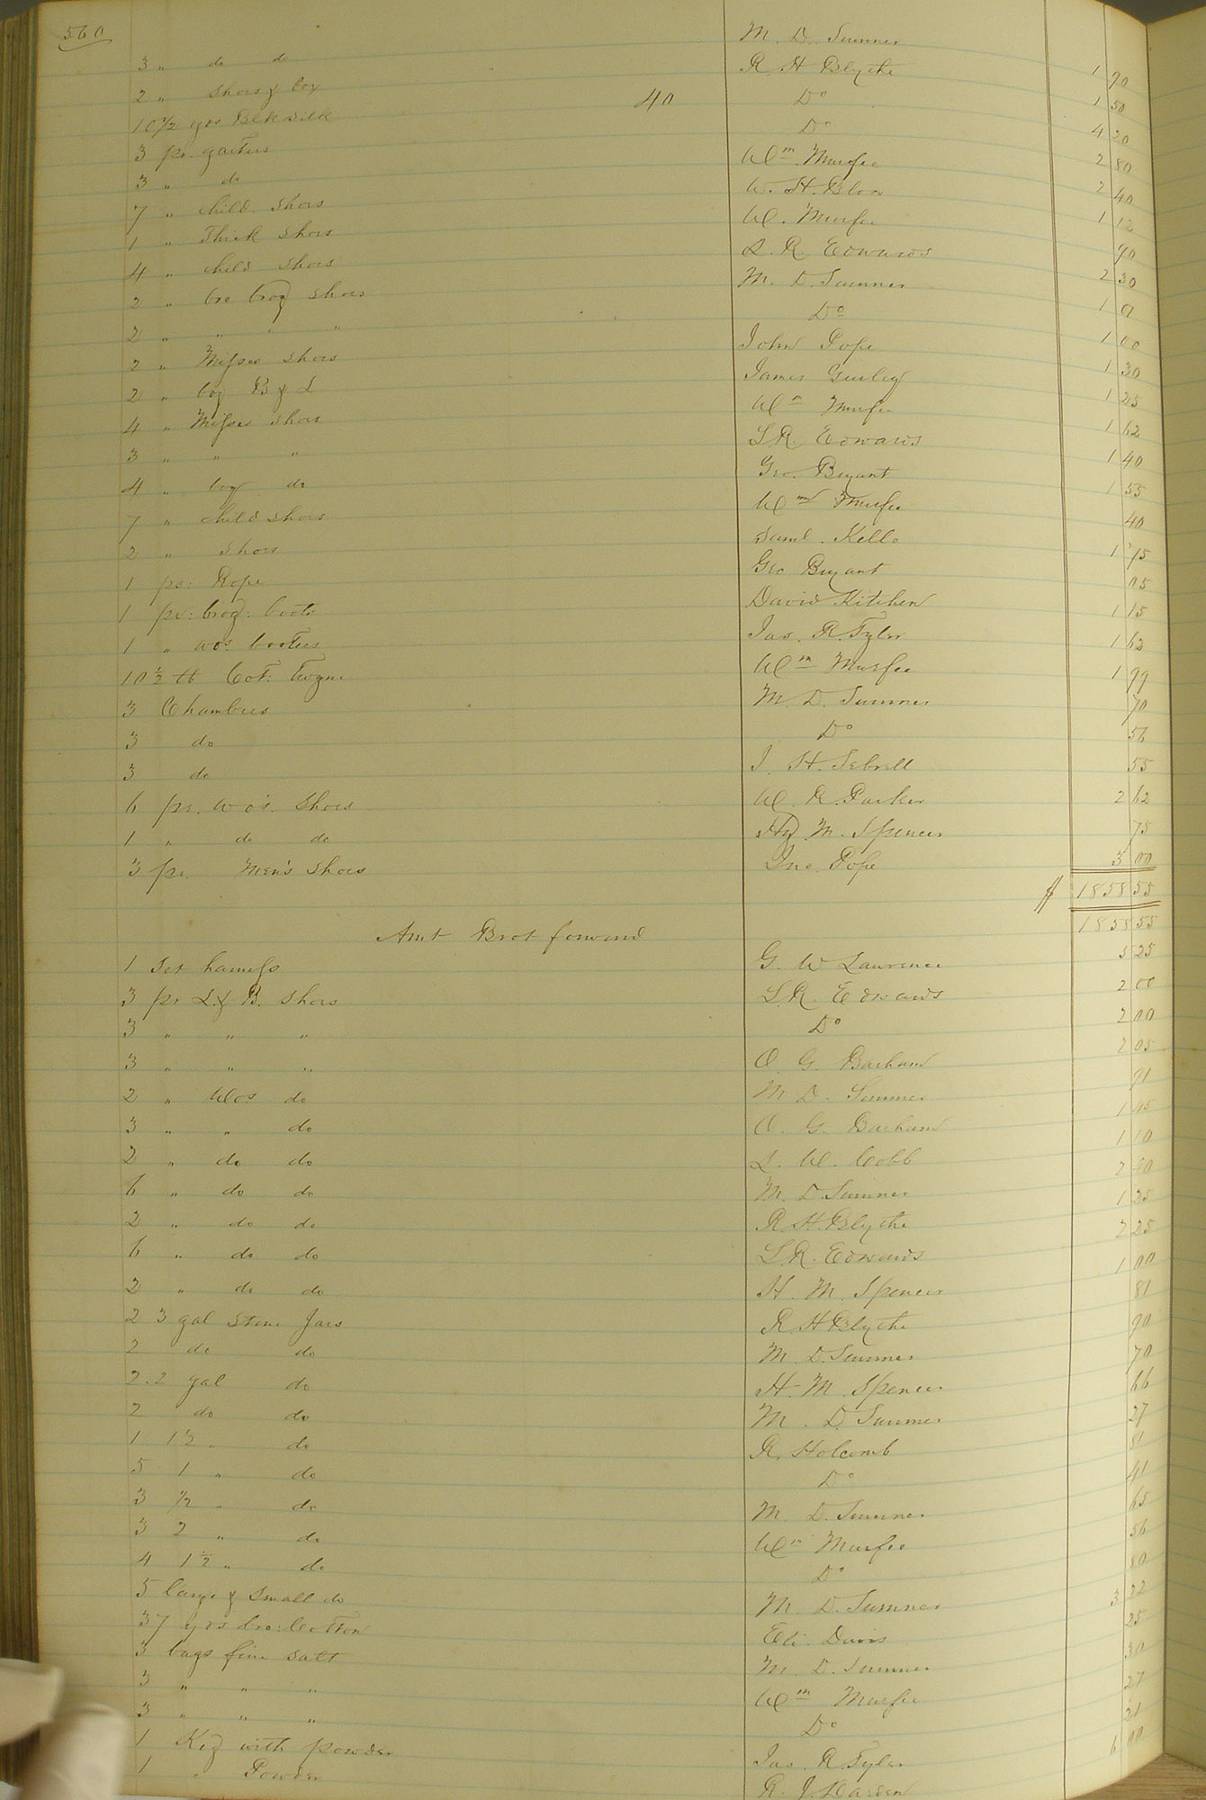 560
3 " do do M. D. Sumner
2 " Shoes & boy R H Blythe 1 90
10 1/2 yds Blk silk 40 Do 1 50
3 pr. gaiters Do 4 20
3 " do Wm Murfee 2 80
7 " child Shoes W. H. 2 40
1 " Thick Shoes W. Murfee 1 12
4 " child Shoes L R Edwards 90
2 " Shoes M. D. Sumner 2 30
2 " " " " Do 1
2 " Misses Shoes John Pope 1 00
2 " boy B & L James Gurley 1 30
4 " Misses Shoes Wm Murfee 1 25
3 " " " L R. Edwards 1 62
4 " boy do Geo. Bryant 1 40
7 " child Shoes Wm Murfee 1 55
2 " Shoes Saml. Kello 40
1 ps: Rope Geo Bryant 1 75
1 pr: brog: boots David Kitchen 05
1 " wos bootees Jas. R. Tyler 1 15
10 1/2 lb Cot: Wm Murfee 1 62
3 Chambers M. D. Sumner 1 99
3 do Do 70
3 do J. H. Sebrell 56
6 pr. wo's. Shoes W. R. Parker 55
1 " do do Hy M. Spencer 2 62
3 pr. Men's Shoes Jno. Pope 75
3 00
$ 1858 55
Amt Brot forward 1858 55
1 Set harness G. W Lawrence 5 25
3 pr L & B. Shoes L R. Edwards 2 00
3 " " " Do 2 00
3 " " " O. G. Barham 2 05
2 " Wos do M D. Sumner 91
3 " " do O. G. Barham 1 45
2 " do do L. W. Cobb 1 10
6 " do do M. D. Sumner 2 90
2 " do do R. H. Blythe 1 25
6 " do do L R. Edwards 2 25
2 " do do H. M. Spencer 1 00
2 3 gal Stone Jars R H Blythe 81
2 do do M D. Sumner 90
2.2 gal do H. M. Spencer 70
2 do do M. D. Sumner 66
1 1 1/2 " do R. Holcomb 27
5 1 " do Do 81
3 1/2 " do M. D. Sumner 41
3 2 " do Wm Murfee 65
4 1 1/2 " do Do 56
5 large & Small do M. D. Sumner 80
37 yds Cotton Eli Davis 3 22
3 bags fine Salt M. D. Sumner 25
3 " " " Wm Murfee 30
3 " " " Do 27
1 Keg with powder Jas. R. Tyler 21
1 " Powder R. J. 6 00